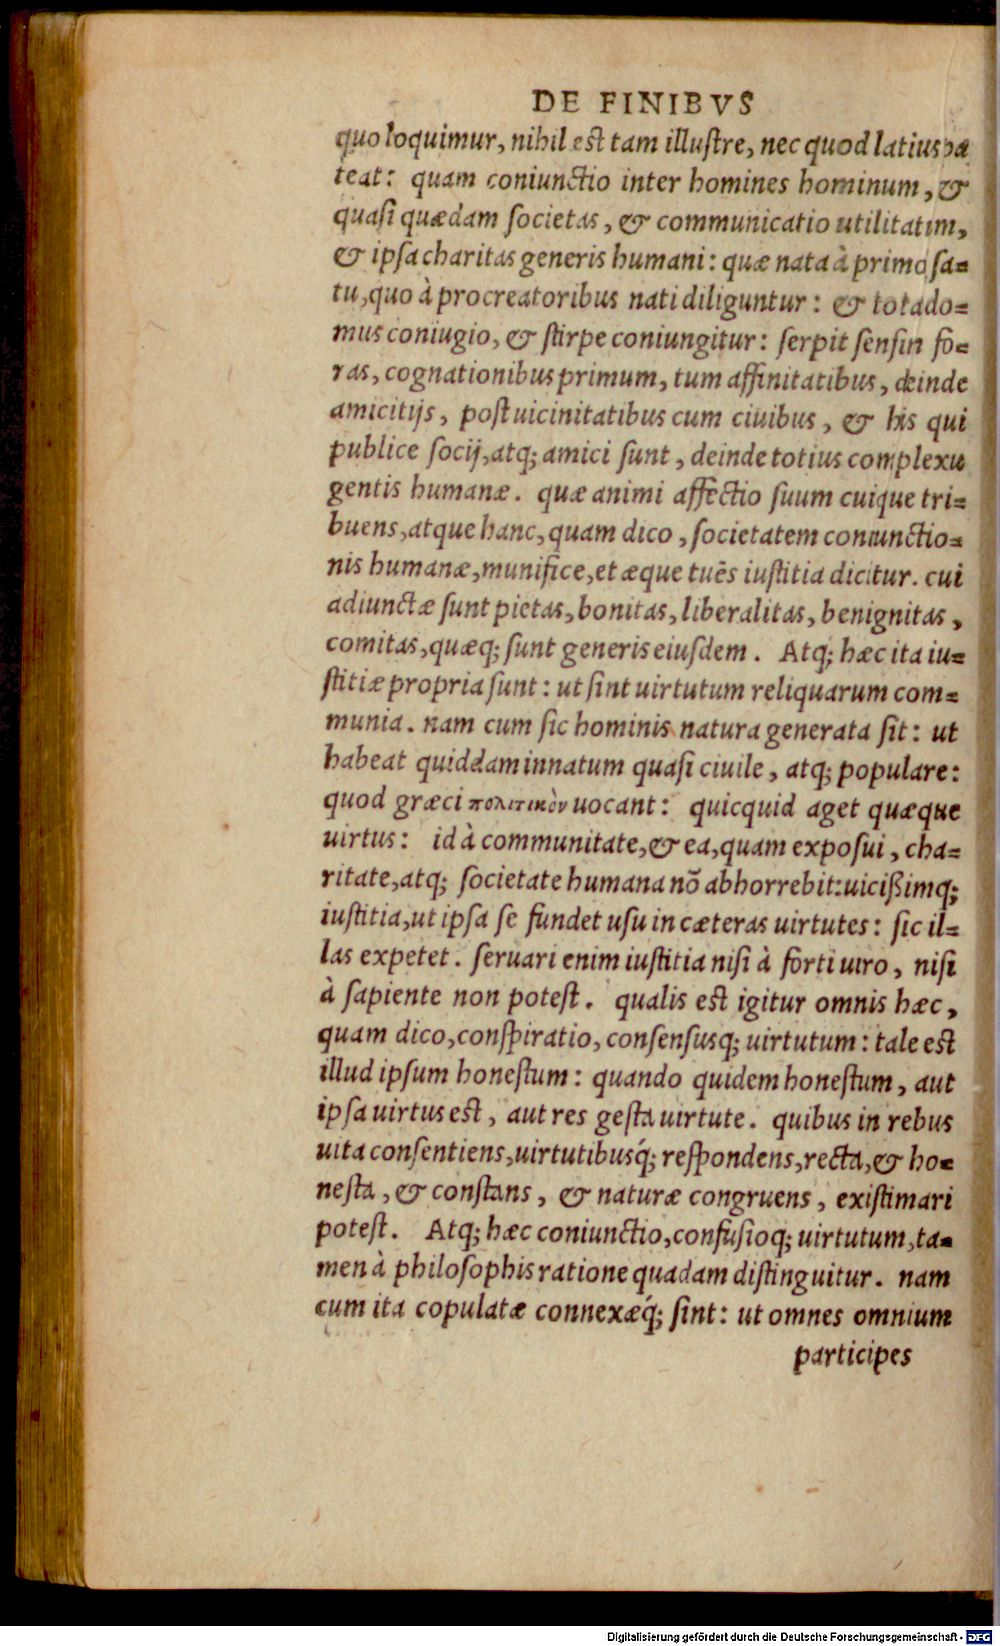 DE FINIBVS
quo loquimur, nihil est tam illuſtre, nec quod latius pæ
teat: quam coniunctio inter homines hominum, &
quaſi quædam ſocietas, & communicatio utilitatum,
& ipſa charitas generis humani: quæ nata à primo ſa=
tu, quo à procreatoribus nati diliguntur: & tota do=
mus coniugio, & ſtirpe coniungitur: ſerpit ſenſin fo=
ras, cognationibus primum, tum affinitatibus, deinde
amicitijs, poſt uicinitatibus cum ciuibus, & his qui
publice ſocij, atq; amici ſunt, deinde totius complexu
gentis humanæ. quæ animi affectio ſuum cuique tri=
buens, atque hanc, quam dico, ſocietatem coniunctio=
nis humanæ, munifice, et æque tuēs iuſtitia dicitur. cui
adiunctæ ſunt pietas, bonitas, liberalitas, benignitas,
comitas, quæq; ſunt generis eiuſdem. Atq; hæc ita iu=
ſtitiæ propria ſunt: ut ſint uirtutum reliquarum com=
munia. nam cum ſic hominis natura generata ſit: ut
habeat quiddam innatum quaſi ciuile, atq; populare:
quod græci πολιτικὸν uocant: quicquid aget quæque
uirtus: id à communitate, & ea, quam expoſui, cha=
ritate, atq; ſocietate humana nō abhorrebit: uicißimq;
iuſtitia, ut ipſa ſe fundet uſu in cæteras uirtutes: ſic il=
las expetet. ſeruari enim iuſtitia niſi à forti uiro, niſi
à ſapiente non poteſt. qualis eſt igitur omnis hæc,
quam dico, conſpiratio, conſenſusq; uirtutum: tale eſt
illud ipſum honeſtum: quando quidem honeſtum, aut
ipſa uirtus eſt, aut res geſta uirtute. quibus in rebus
uita conſentiens, uirtutibusq́; reſpondens, recta, & ho=
neſta, & conſtans, & naturæ congruens, exiſtimari
poteſt. Atq; hæc coniunctio, confuſioq; uirtutum, ta=
men à philoſophis ratione quadam diſtinguitur. nam
cum ita copulatæ connexæq́; ſint: ut omnes omnium
participes
Digitalisierung gefördert durch die Deutsche Forschungsgemeinschaft - DFG